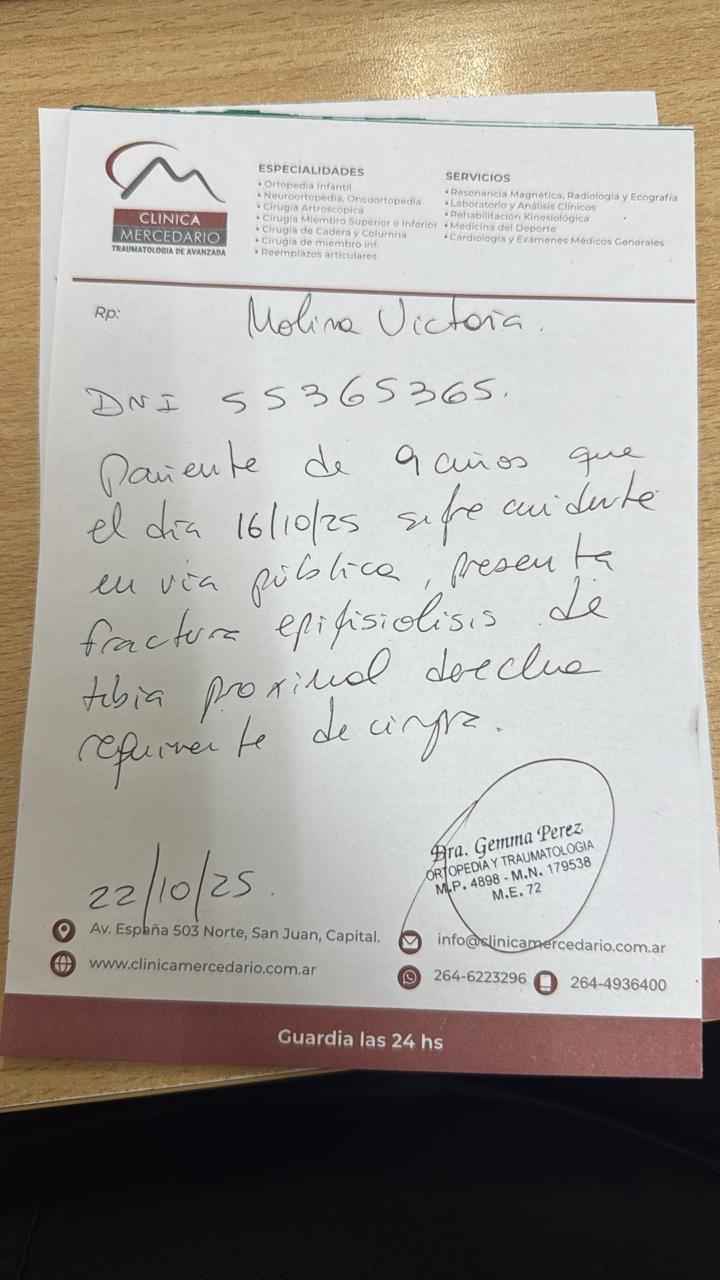 CLINICA
MERCEDARIO
TRAUMATOLOGIA DE AVANZADA
ESPECIALIDADES
• Ortopedia Infantil
• Neuroortopedia, Oncoortopedia
• Cirugía Artroscópica
• Cirugía Miembro Superior e Inferior
• Cirugía de Cadera y Columna
• Cirugía de miembro inf.
• Reemplazos articulares
SERVICIOS
• Resonancia Magnética, Radiología y Ecografía
• Laboratorio y Análisis Clínicos
• Rehabilitación Kinesiológica
• Medicina del Deporte
• Cardiología y Exámenes Médicos Generales
Rp:
Molina Victoria.
DNI 55365365.
Paciente de 9 años que
el dia 16/10/25 sufre accidente
en via pública, presenta
fractura epifisiolisis de
tibia proximal derecha
requirente de cirugía.
22/10/25.
Dra. Gemma Perez
ORTOPEDIA Y TRAUMATOLOGIA
M.P. 4898 - M.N. 179538
M.E. 72
Av. España 503 Norte, San Juan, Capital.
info@clinicamercedario.com.ar
www.clinicamercedario.com.ar
264-6223296
264-4936400
Guardia las 24 hs